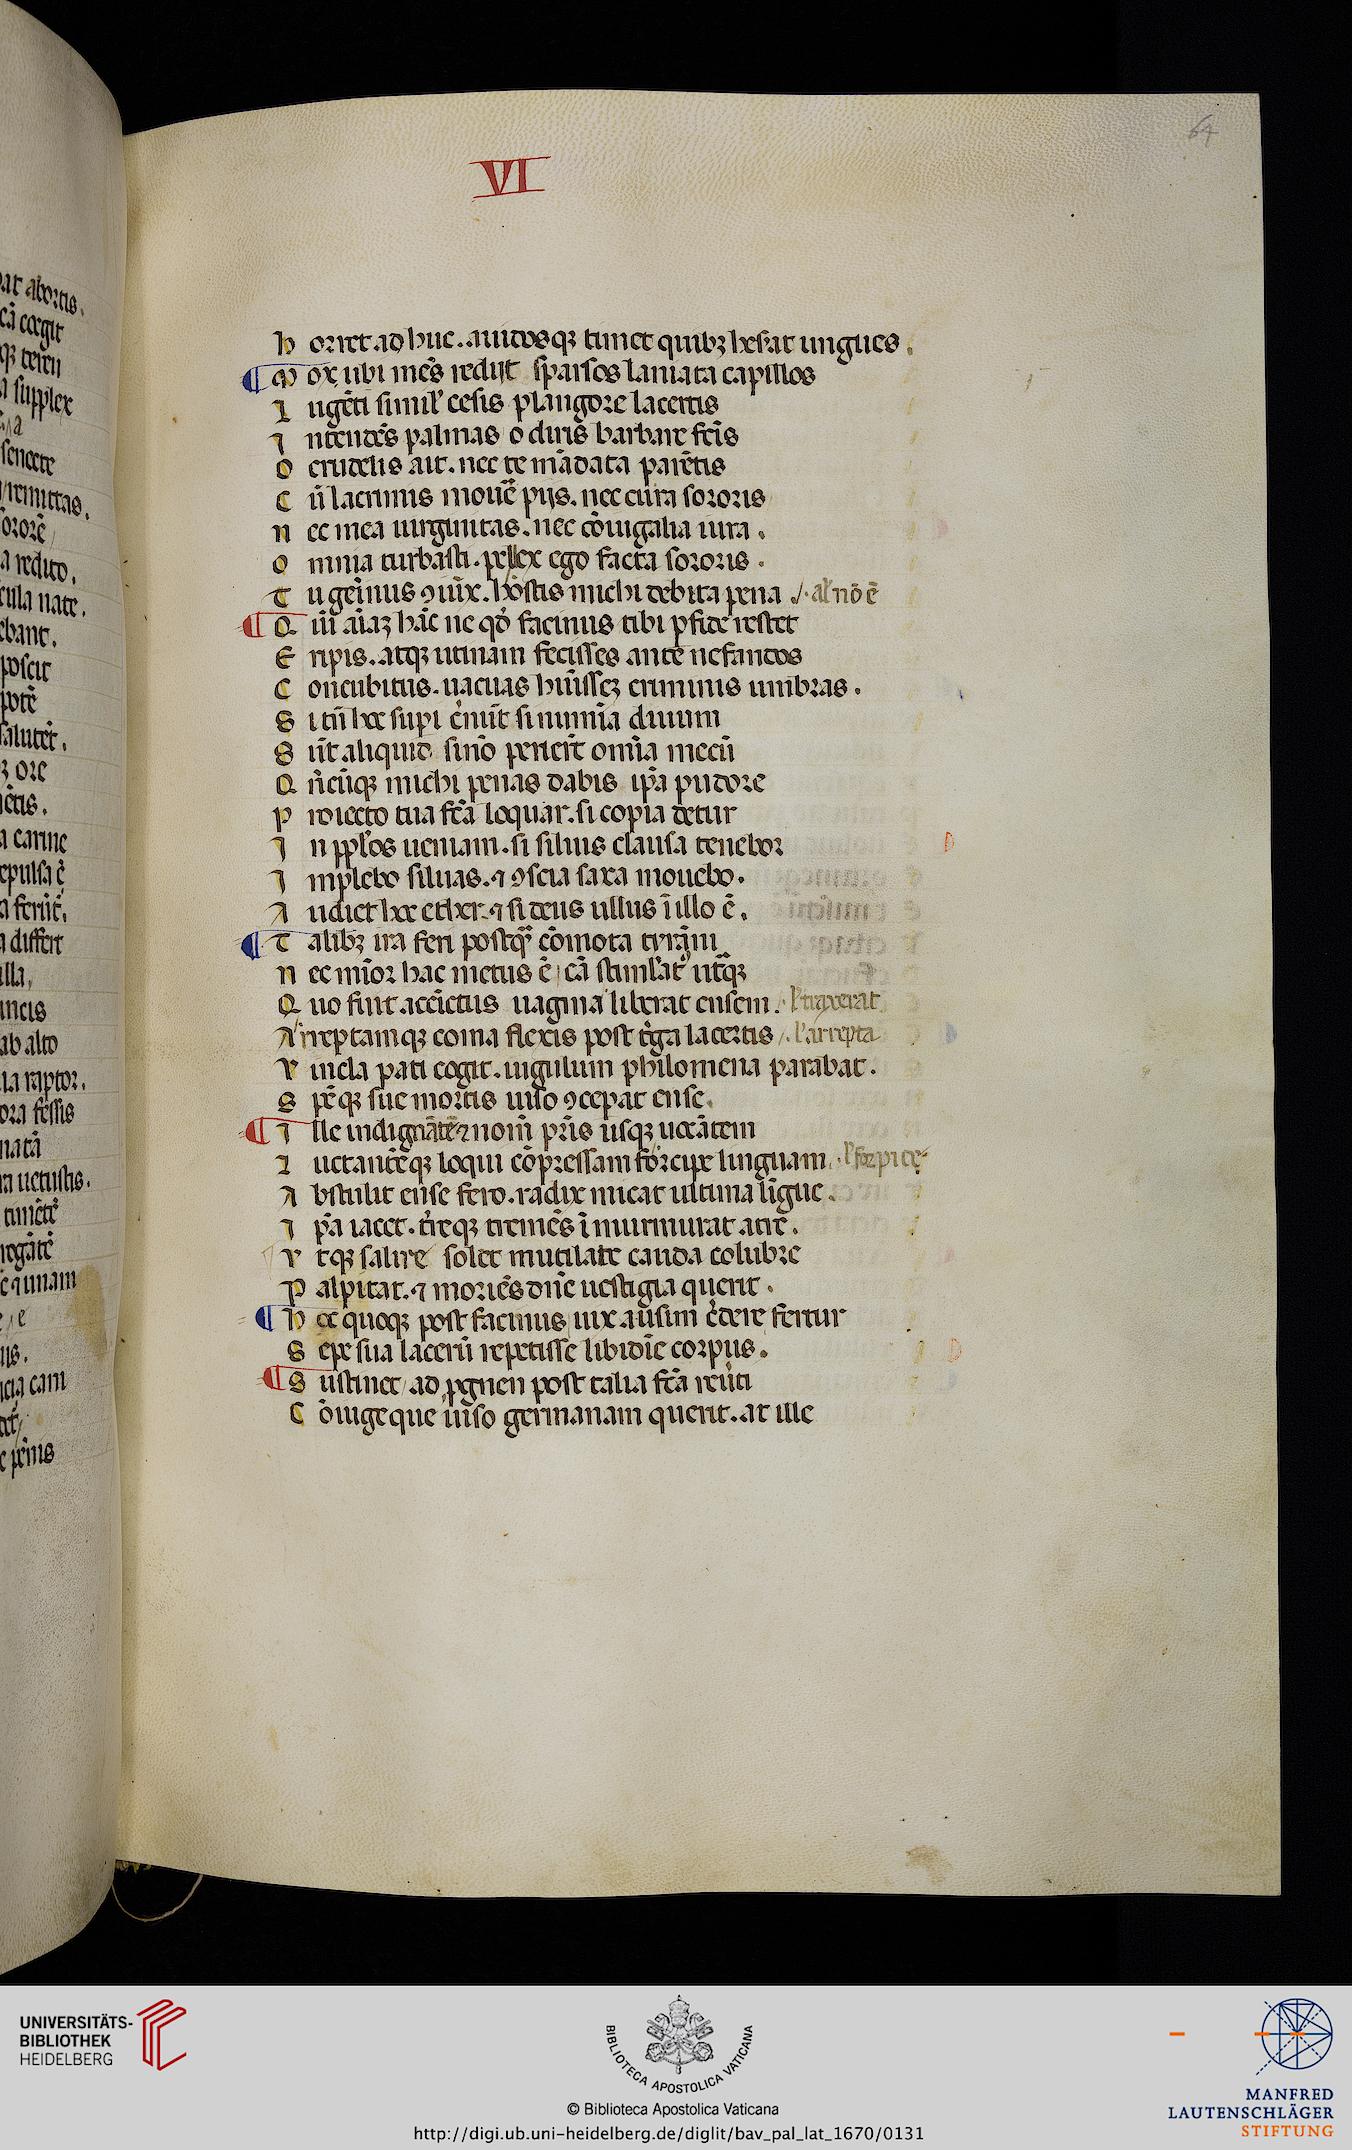 64
VI
h orret ad huc. auidosqꝫ timet quibꝫ hesat ungues.
M ox ubi mēs redijt sparsos laniata capillos
L ugēti simil' cesis plangore lacertis
I ntendēs palmas o diris barbare fc̄is
O crudelis ait. nec te mādata parētis
C ū lacrimis mouēt pijs. nec cura sororis
N ec mea uirginitas. nec cōiugalia iura.
O mnia turbasti. pellex ego facta sororis.
T u geminus ꝯiūx. hostis michi debita pena /. al' nō ē
Q ui aīaꝫ hāc ne qd' facinus tibi pfide restet
E ripis. atqꝫ utinam fecisses ante nefandos
C oncubitus. uacuas huissēꝫ criminis umbras.
S i tn̄ hec supi c̄nūt si numīa diuum
S ūt aliquid sinō perierīt omīa mecū
Q n̄cūqꝫ michi penas dabis ip̄a pudore
P roiecto tua fc̄a loquar. si copia detur
I n ppl'os ueniam. si siluis clausa tenebor
I mplebo siluas. ⁊ ꝯscia saxa mouebo.
A udiet hec ether. ⁊ si deus ullus ī illo ē.
T alibꝫ ira feri postqᵃ cōmota tyrāni
N ec mīor hac metus ē cā stimlat' ut̄qꝫ
Q uo fuit accīctus uagina liberat ensem. l' traxerat
A rreptamqꝫ coma flexis post t'ga lacertis /. l' arrepta
V incla pati cogit. iugulum philomena parabat.
S pēqꝫ sue mortis uiso ꝯcepat ense.
I lle indignātē ⁊ nom̄ pr̄is usqꝫ uocātem
L uctantēqꝫ loqui cōpressam forcipe linguam. l' forpice
A bstulit ense fero. radix micat ultima līgue.
I p̄a iacet. t'reqꝫ tremēs ī murmurat atre.
V tqꝫ salire solet mutilate cauda colubre
P alpitat. ⁊ moriēs dn̄e uestigia querit.
H oc quoqꝫ post facinus uix ausim c'dere fertur
S epe sua lacerū repetisse libidīe corpus.
S ustinet ad pgnen post talia fc̄a reūti
C ōiuge que uiso germanam querit. at ille
UNIVERSITÄTS-
BIBLIOTHEK
HEIDELBERG
BIBLIOTECA APOSTOLICA VATICANA
© Biblioteca Apostolica Vaticana
http://digi.ub.uni-heidelberg.de/diglit/bav_pal_lat_1670/0131
MANFRED
LAUTENSCHLÄGER
STIFTUNG